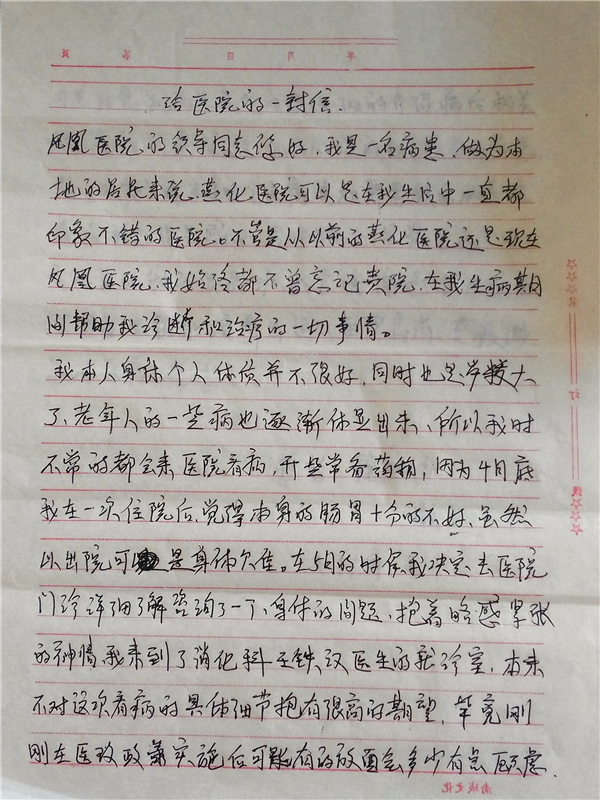 给医院的一封信.
凤凰医院的领导同志您好，我是一名病患，做为本
地的居民来说，燕化医院可以是在我生活中一直都
印象不错的医院。不管是从以前的燕化医院还是现在
凤凰医院，我始终都不曾忘记贵院，在我生病其间
间帮助我诊断和治疗的一切事情。
我本人身体个人体质并不很好，同时也是岁数大
了，老年人的一些病也逐渐体显出来，所以我时
不常的都会来医院看病，开些常备药物，因为4月底
我在一次住院后，觉得本身的肠胃十分的不好，虽然
以出院可是身体欠佳。在5月的时候我决定去医院
门诊详细了解咨询了一下，身体的问题，抱着略感紧张
的神情，我来到了消化科王铁汉医生的就诊室，本来
不对这次看病的具体细节抱有很高的期望，毕竟刚
刚在医改政策实施后可能有的方面会多少有点顾虑.
南城文化